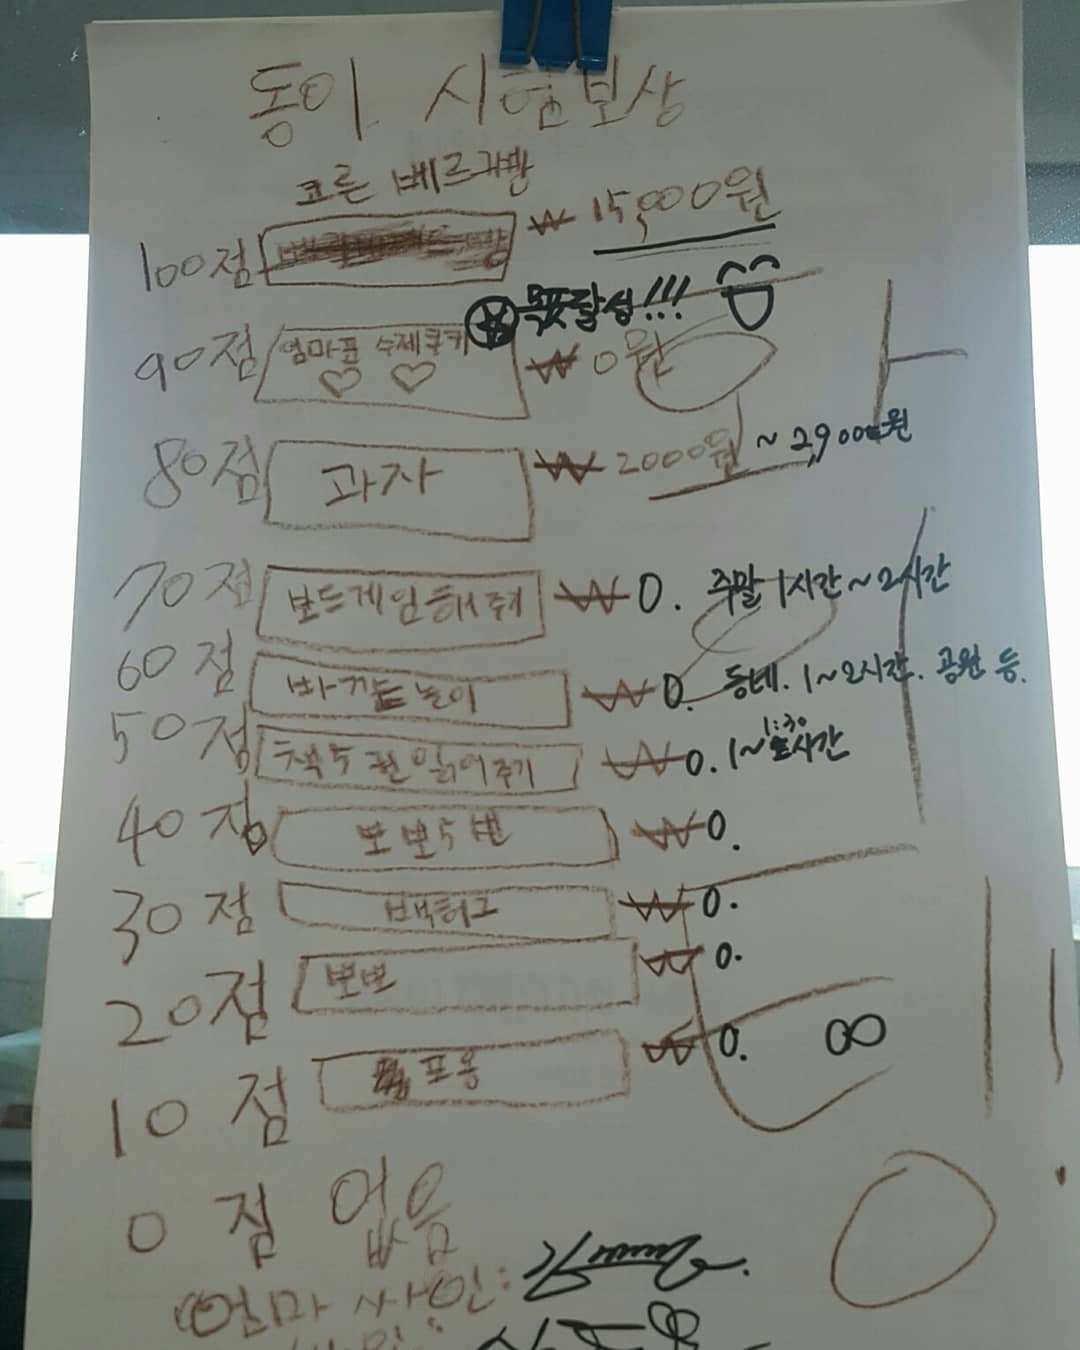 동이 시험보상
코른 베르그빵
100점 ₩ 15,000원
목표달성!!!
90점 엄마표 수제쿠키 ₩ 0원
80점 과자 ₩ 2000원 ~ 2,900원
70점 보드게임해주기 ₩ 0. 주말 1시간~2시간
60점 바깥놀이 ₩ 0. 동네. 1~2시간. 공원 등.
50점 책 5권 읽어주기 ₩ 0. 1~1:30시간
40점 뽀뽀 5번 ₩ 0.
30점 백허그 ₩ 0.
20점 뽀뽀 ₩ 0.
10점 포옹 ₩ 0. ∞
0점 없음
엄마 사인: